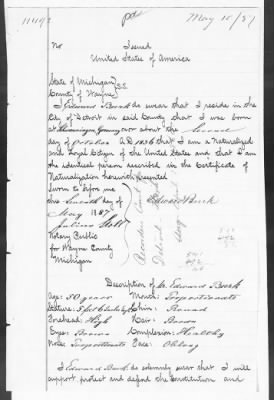 May 10/87
No
Issued
United States of America
State of Michigan
County of Wayne } S.S.
I Edward Bock do swear that I reside in the
City of Detroit in said County that I was born
at Germany on or about the Second
day of October A.D. 1836 that I am a Naturalized
and Loyal Citizen of the United States and that I am
the identical person described in the Certificate of
Naturalization herewith presented
Sworn to before me
this Seventh day of
Edward Bock
May 1887
Julius Stoll
Notary Public
for Wayne County
Michigan
Description of Mr. Edward Bock
Age: 50 years Mouth: Proportionate
Stature: 5 feet 6 inches Chin: Round
Forehead: High Hair: Brown
Eyes: Brown Complexion: Healthy
Nose: Proportionate Face: Oblong
I Edward Bock do solemnly swear that I will
support protect and defend the Constitution and